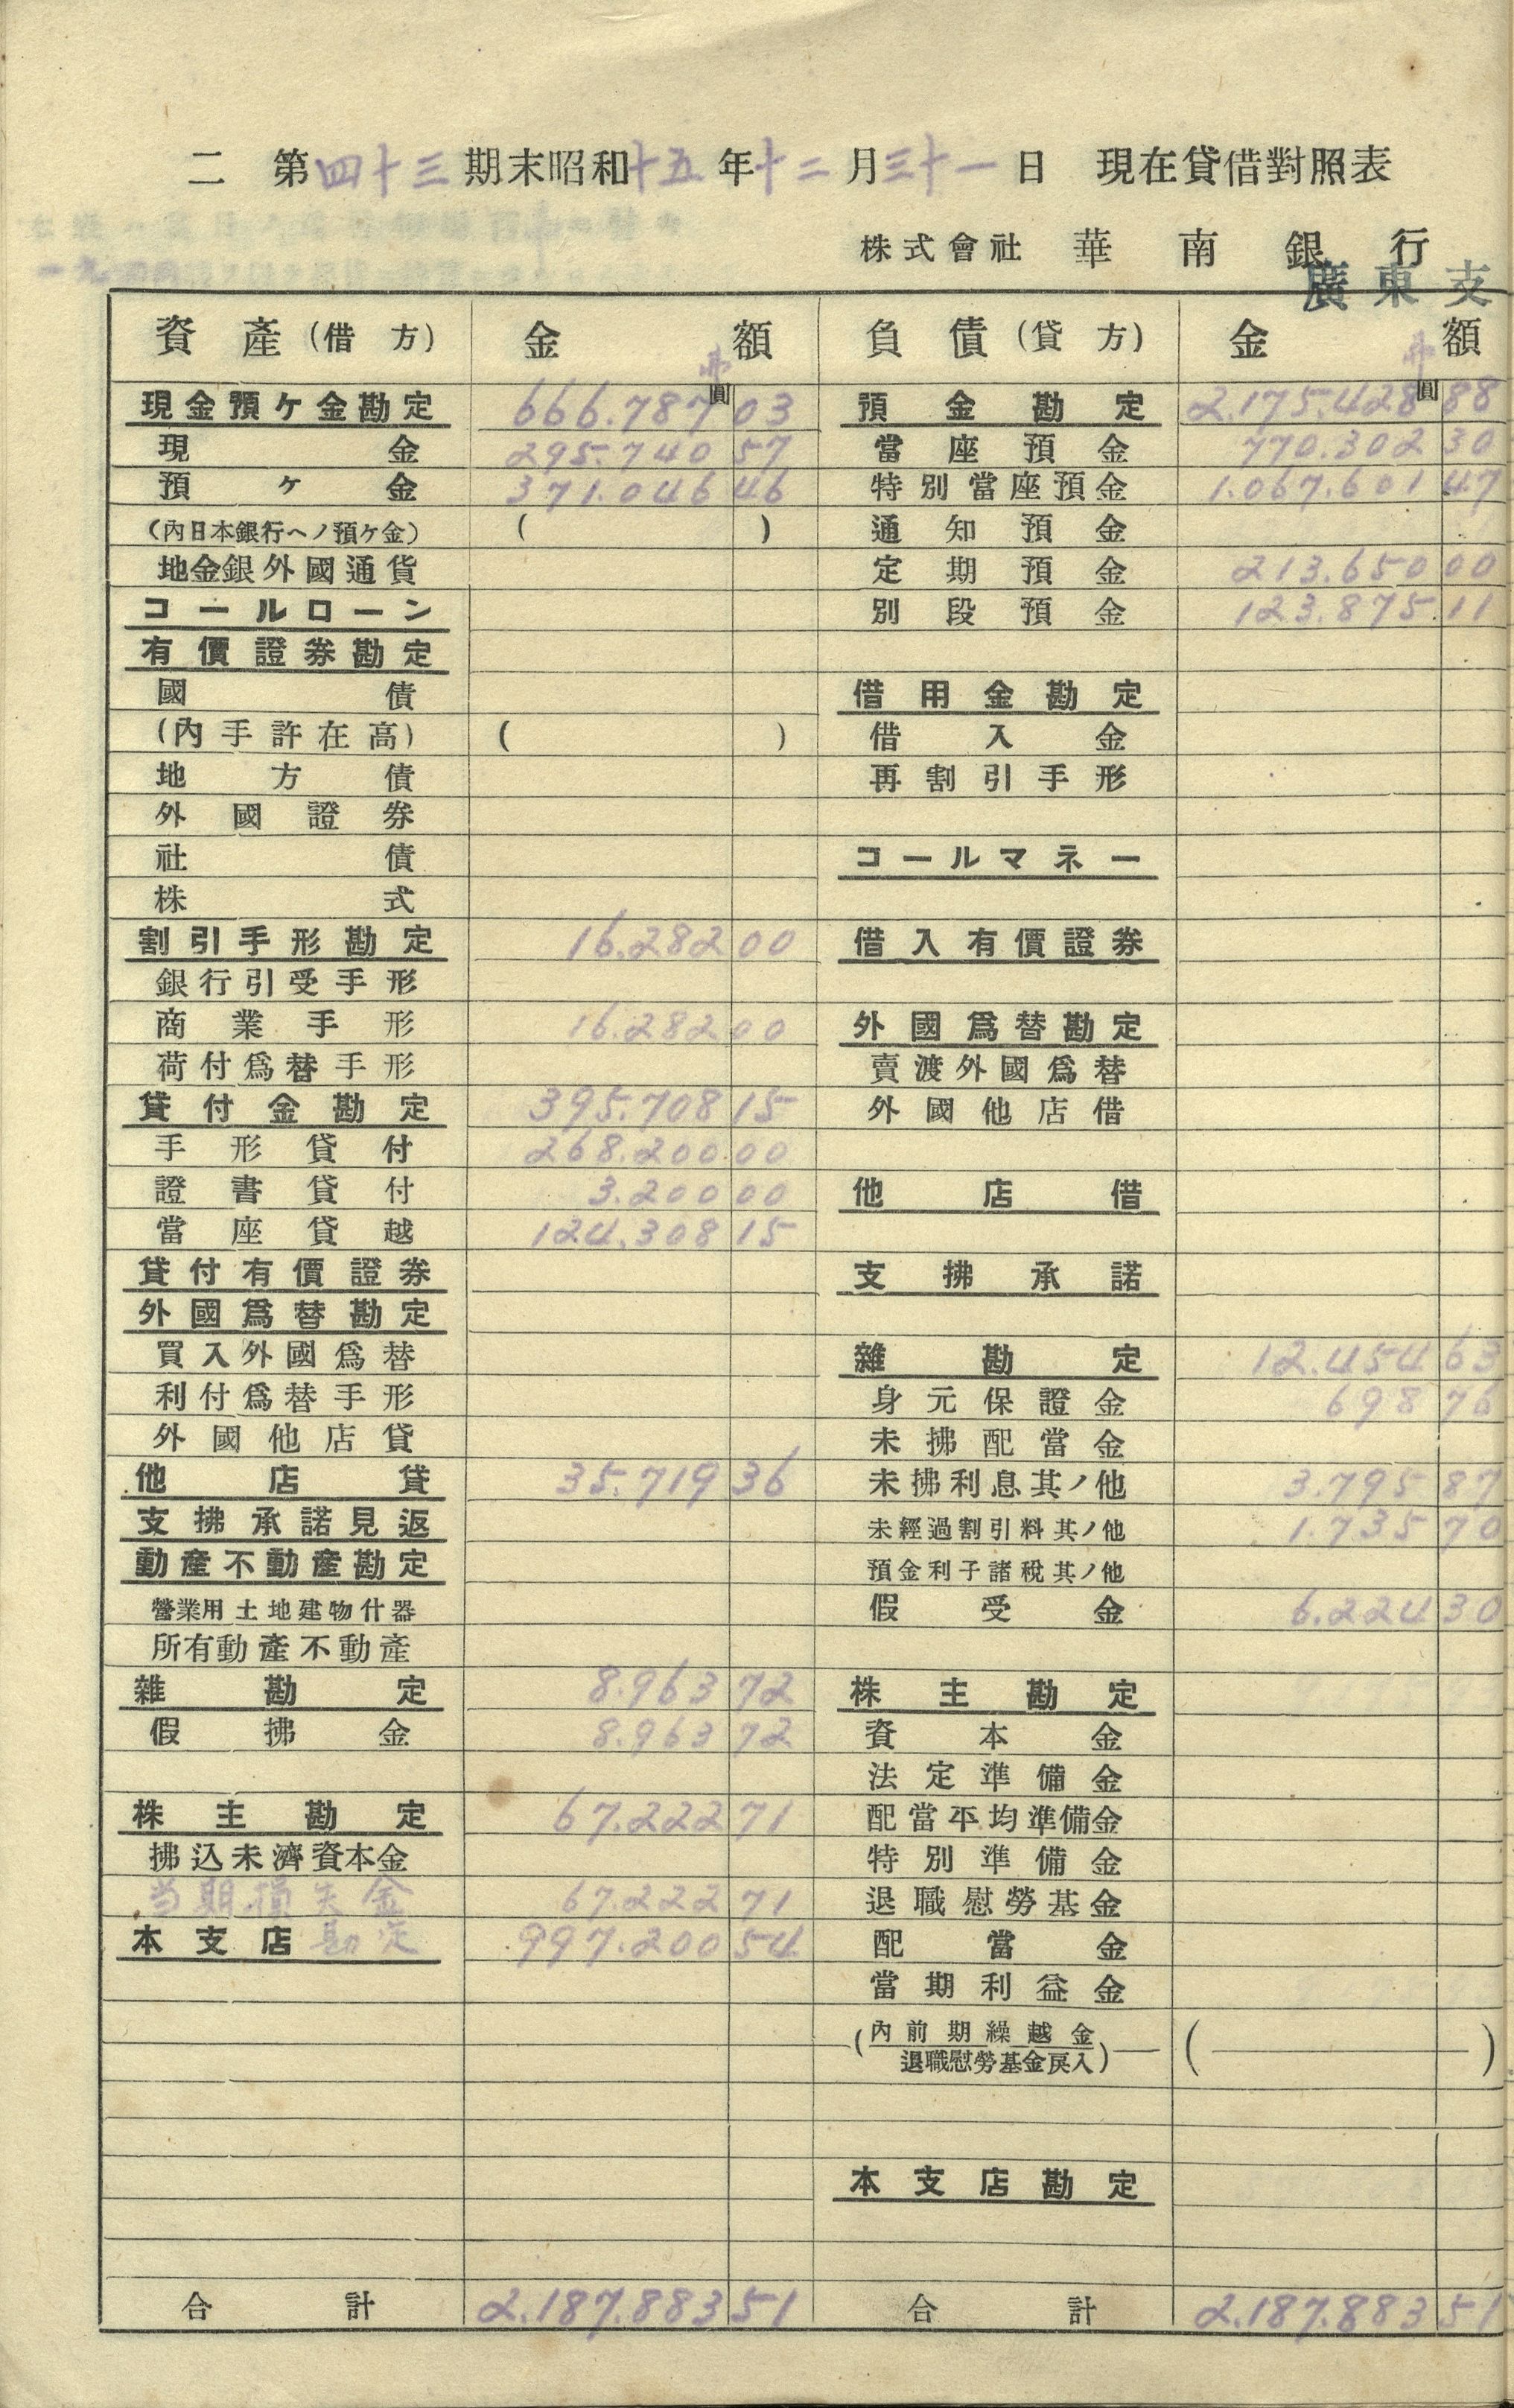 二 第四十三期末昭和十五年十二月三十一日 現在貸借對照表
株式會社 華南銀行
廣東支
資產(借方) 金額 負債(貸方) 金額
弗 弗
圓 圓
現金預ケ金勘定 666.787 03 預金勘定 2.175.428 88
現金 295.740 57 當座預金 770.302 30
預ケ金 371.046 46 特別當座預金 1.067.601 47
(內日本銀行ヘノ預ケ金) ( ) 通知預金
地金銀外國通貨 定期預金 213.650 00
コールローン 別段預金 123.875.11
有價證券勘定
國債 借用金勘定
(內手許在高) ( ) 借入金
地方債 再割引手形
外國證券
社債 コールマネー
株式
割引手形勘定 16.282 00 借入有價證券
銀行引受手形
商業手形 16.282 00 外國爲替勘定
荷付爲替手形 賣渡外國爲替
貸付金勘定 395.708 15 外國他店借
手形貸付 268.200.00
證書貸付 3.200 00 他店借
當座貸越 124.308 15
貸付有價證券 支拂承諾
外國爲替勘定
買入外國爲替 雜勘定 12.454 63
利付爲替手形 身元保證金 698 76
外國他店貸 未拂配當金
他店貸 35.719 36 未拂利息其ノ他 3.795 87
支拂承諾見返 未經過割引料其ノ他 1.735 70
動產不動產勘定 預金利子諸稅其ノ他
營業用土地建物什器 假受金 6.224 30
所有動產不動產
雜勘定 8.963 72 株主勘定
假拂金 8.963 72 資本金
法定準備金
株主勘定 67.222 71 配當平均準備金
拂込未濟資本金 特別準備金
当期損失金 67.222 71 退職慰勞基金
本支店勘定 997.200 54 配當金
當期利益金
(內前期繰越金 ( )
退職慰勞基金戾入)
本支店勘定
合計 2.187.883 51 合計 2.187.883 51